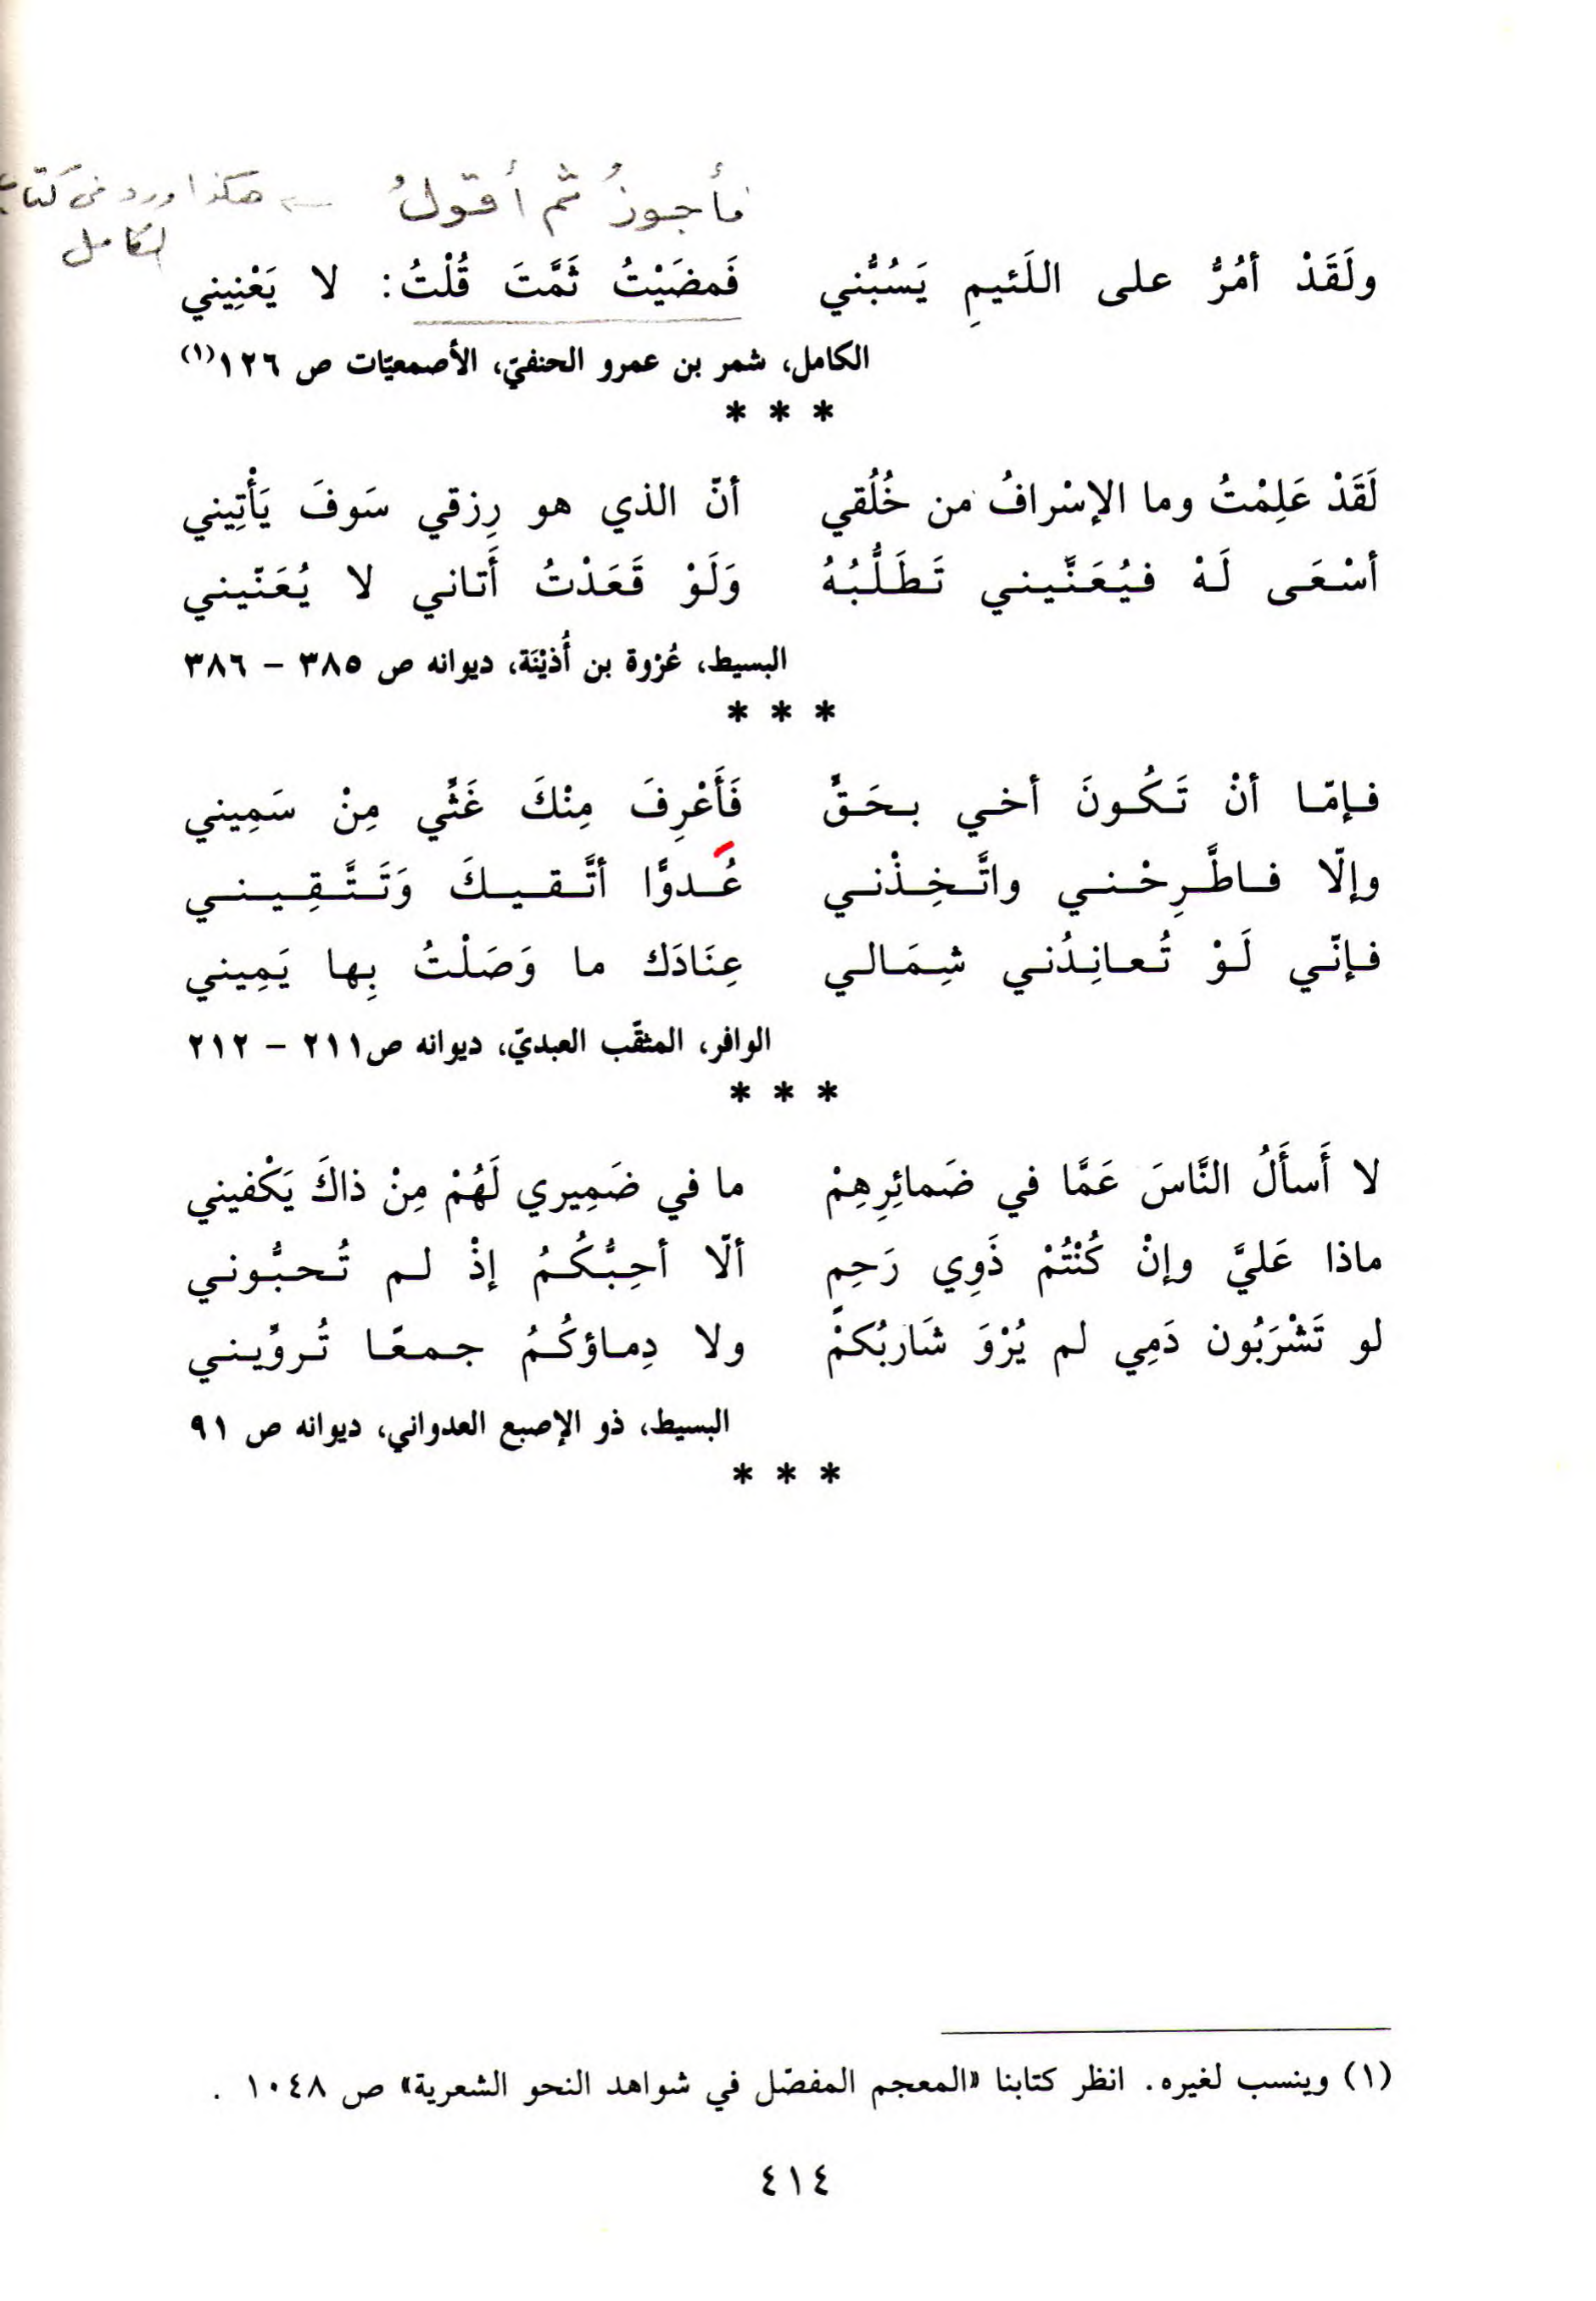 فأجوزُ ثم أقولُ ← هكذا ورد في كتاب
الكامل
ولَقَدْ أمُرُّ على اللَئيمِ يَسُبُّني فَمضَيْتُ ثَمَّتَ قُلْتُ: لا يَعْنِيني
الكامل، شمر بن عمرو الحنفيّ، الأصمعيّات ص ١٢٦(١)
* * *
لَقَدْ عَلِمْتُ وما الإسْرافُ من خُلُقي أنّ الذي هو رِزقي سَوفَ يَأْتِيني
أسْعَى لَهْ فيُعَنِّيني تَطَلُّبُهُ وَلَوْ قَعَدْتُ أَتاني لا يُعَنّيني
البسيط، عُرْوة بن أُذيْنَة، ديوانه ص ٣٨٥ – ٣٨٦
* * *
فإمّا أنْ تَكُونَ أخي بحَقٍّ فَأَعْرِفَ مِنْكَ غَثِّي مِنْ سَمِيني
وإلّا فاطَّرِحْني واتَّخِذْني عُدوًّا أتَّقيكَ وَتَتَّقِيني
فإنّي لَوْ تُعانِدُني شِمَالي عِنَادَك ما وَصَلْتُ بِها يَمِيني
الوافر، المثقّب العبديّ، ديوانه ص٢١١ – ٢١٢
* * *
لا أَسأَلُ النَّاسَ عَمَّا في ضَمائِرِهِمْ ما في ضَمِيري لَهُمْ مِنْ ذاكَ يَكْفيني
ماذا عَليَّ وإنْ كُنْتُمْ ذَوِي رَحِمٍ ألّا أحِبُّكُمُ إذْ لم تُحبُّوني
لو تَشْرَبُون دَمِي لم يُرْوَ شَاربُكمْ ولا دِماؤكُمُ جمعًا تُروِّيني
البسيط، ذو الإصبع العدواني، ديوانه ص ٩١
* * *
(١) وينسب لغيره. انظر كتابنا «المعجم المفصّل في شواهد النحو الشعرية» ص ١٠٤٨ .
٤١٤